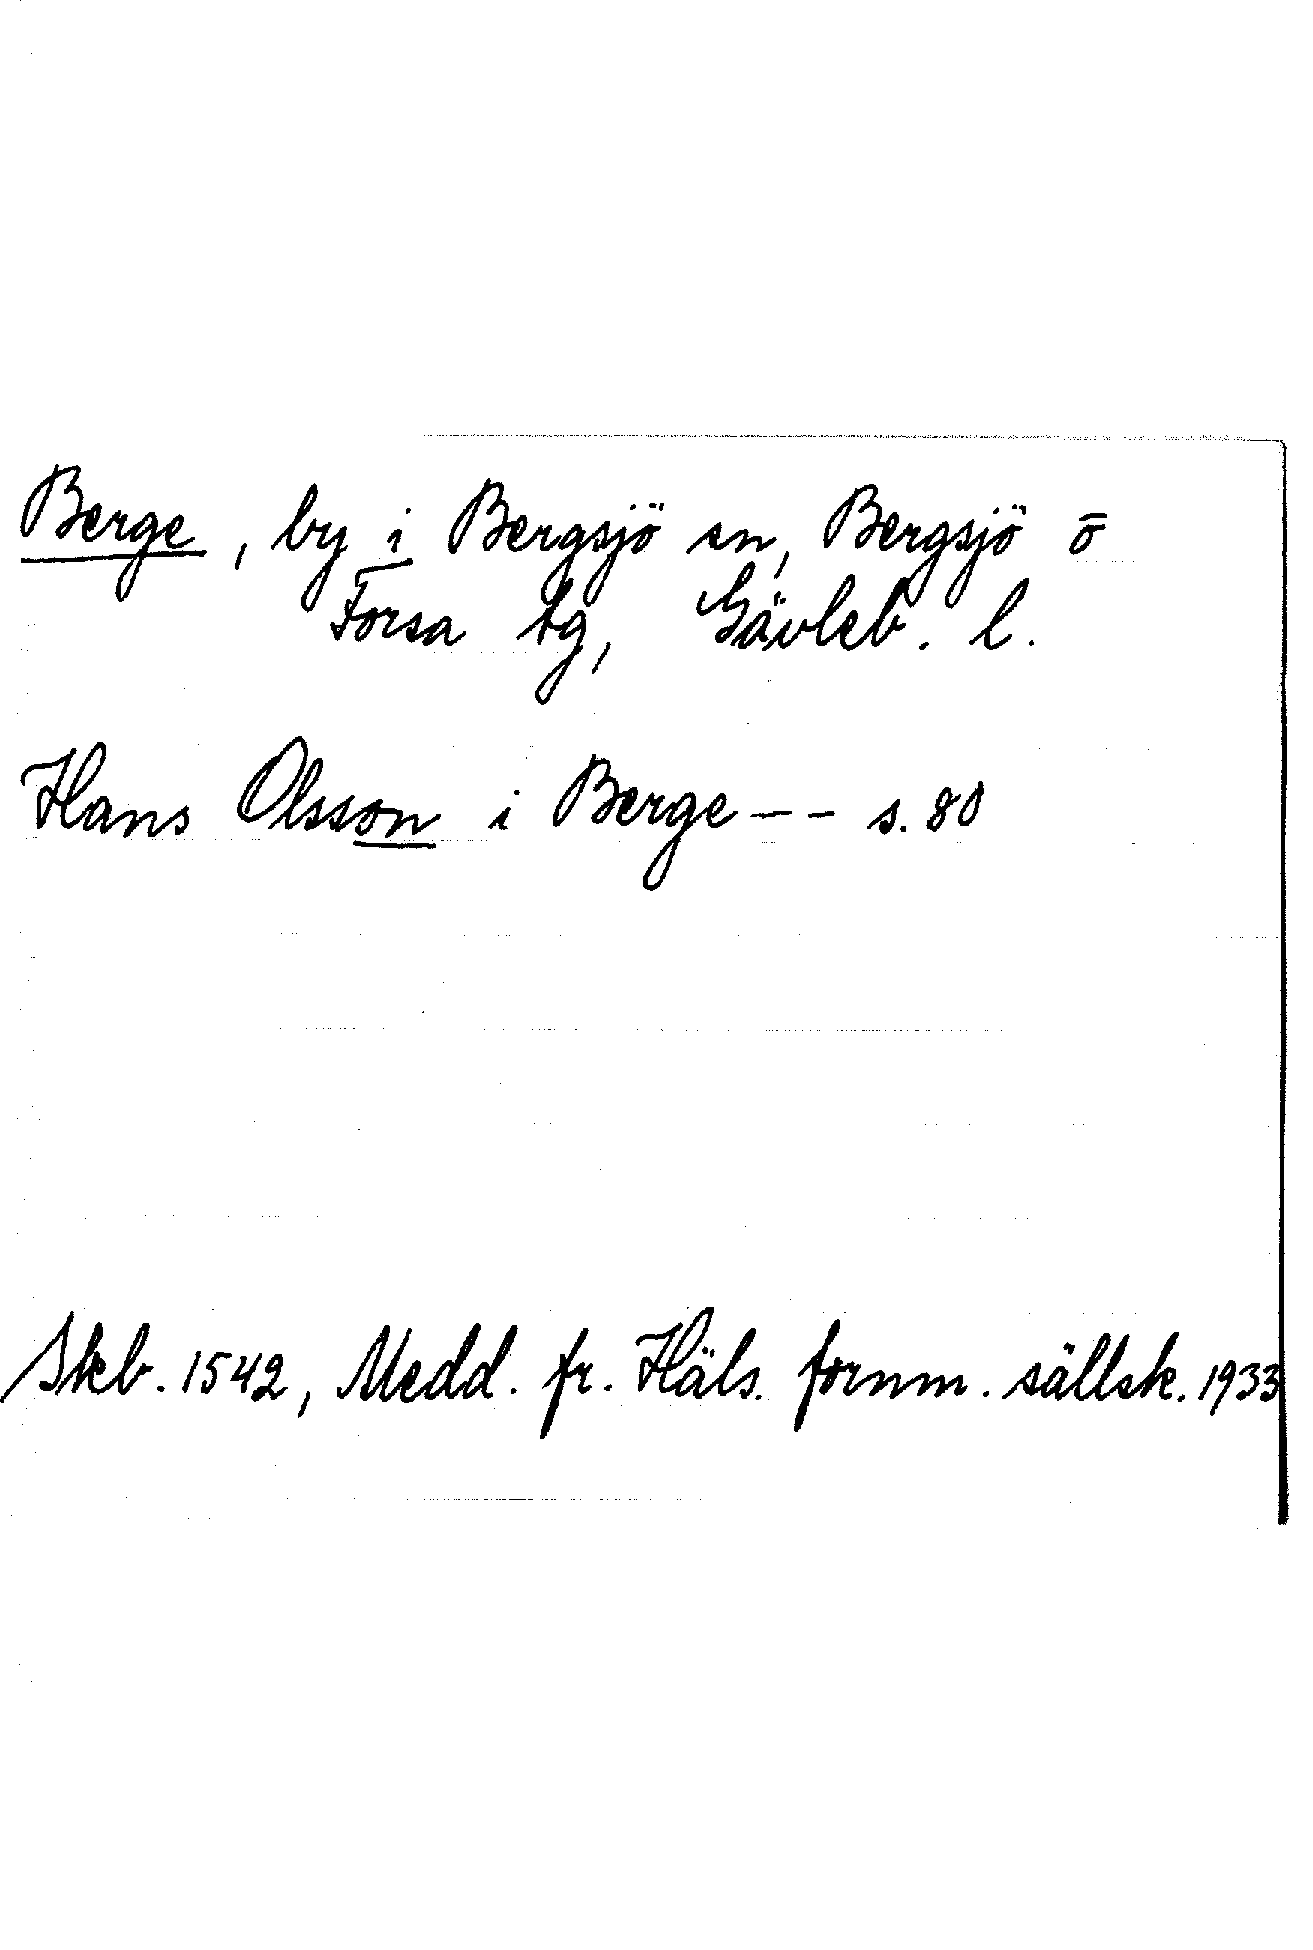 Berge, by i Bergsjö sn, Bergsjö o
Forsa tg, Gävleb. l.
Hans Olsson i Berge - - s. 80
Skb. 1542, Medd. fr. Häls. fornm. sällsk. 1933